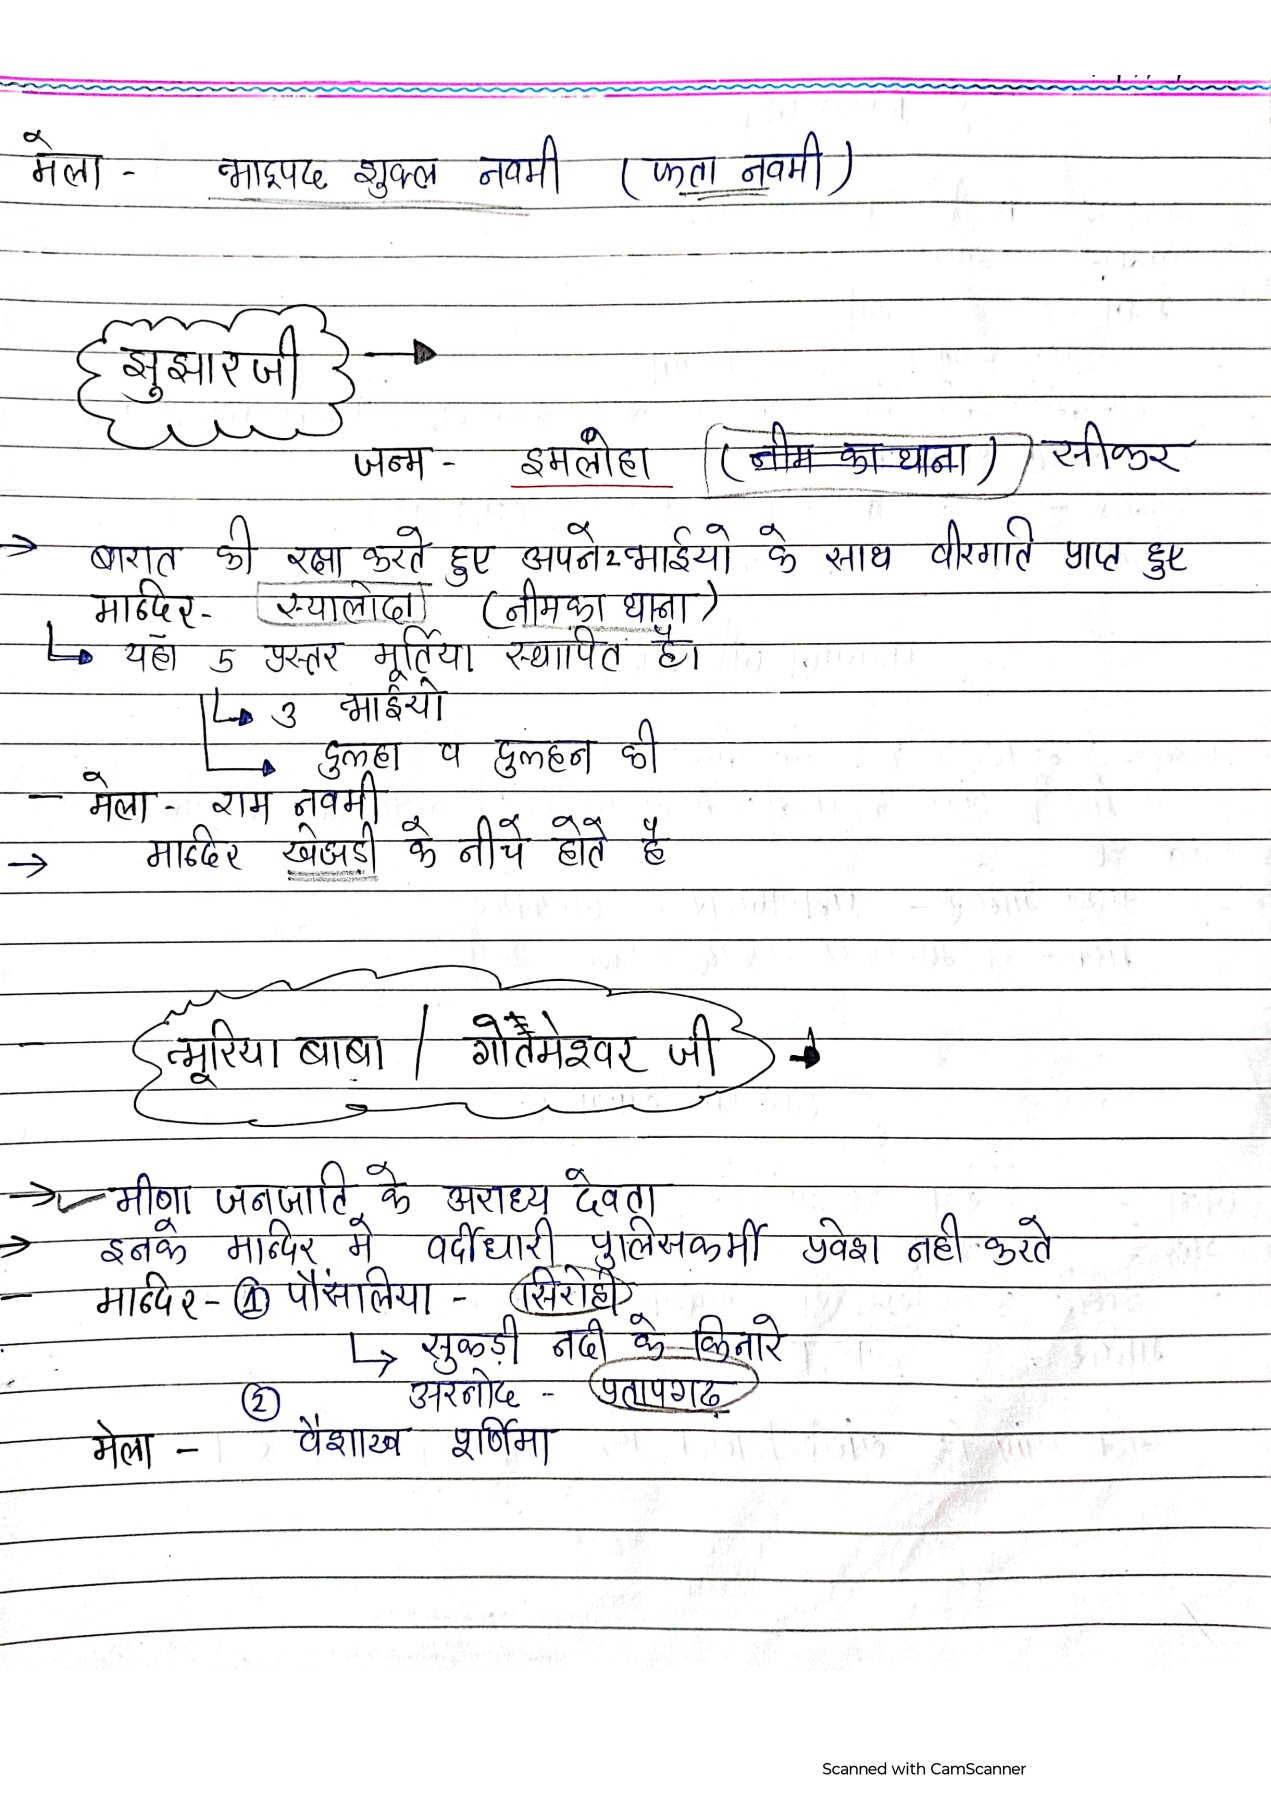 मेला - भाद्रपद शुक्ल नवमी (फता नवमी)
झुझारजी →
जन्म - इमलोहा (नीम का थाना) सीकर
→ बारात की रक्षा करते हुए अपने 2 भाईयो के साथ वीरगति प्राप्त हुए
मन्दिर- स्यालोदा (नीमका थाना)
↳ यहाँ 5 प्रस्तर मूर्तिया स्थापित है।
↳ 3 भाईयो
↳ दुल्हा व दुल्हन की
- मेला - राम नवमी
→ मन्दिर खेजडी के नीचे होते है
भूरिया बाबा / गोतमेश्वर जी →
→ मीणा जनजाति के अराध्य देवता
→ इनके मन्दिर मे वर्दीधारी पुलिसकर्मी प्रवेश नही करते
- मन्दिर - ① पौसालिया - सिरोही
↳ सुकड़ी नदी के किनारे
② अरनोद - प्रतापगढ
मेला - वैशाख पूर्णिमा
Scanned with CamScanner